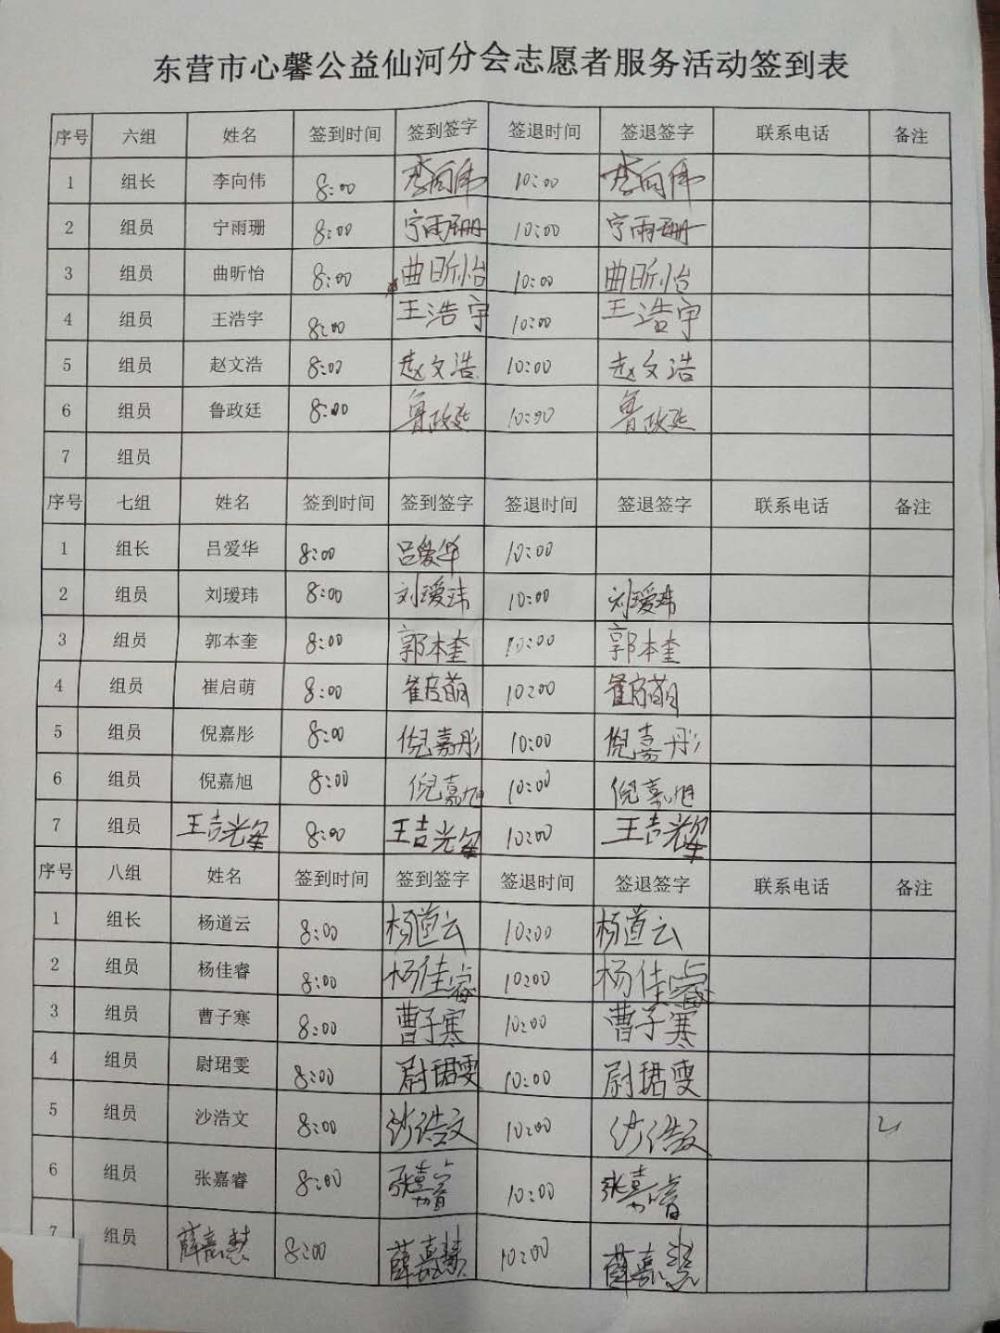 东营市心馨公益仙河分会志愿者服务活动签到表
序号 六组 姓名 签到时间 签到签字 签退时间 签退签字 联系电话 备注
1 组长 李向伟 8:00 李向伟 10:00 李向伟
2 组员 宁雨珊 8:00 宁雨珊 10:00 宁雨珊
3 组员 曲昕怡 8:00 曲昕怡 10:00 曲昕怡
4 组员 王浩宇 8:00 王浩宇 10:00 王浩宇
5 组员 赵文浩 8:00 赵文浩 10:00 赵文浩
6 组员 鲁政廷 8:00 鲁政廷 10:00 鲁政廷
7 组员
序号 七组 姓名 签到时间 签到签字 签退时间 签退签字 联系电话 备注
1 组长 吕爱华 8:00 吕爱华 10:00
2 组员 刘瑷玮 8:00 刘瑷玮 10:00 刘瑷玮
3 组员 郭本奎 8:00 郭本奎 10:00 郭本奎
4 组员 崔启萌 8:00 崔启萌 10:00 崔启萌
5 组员 倪嘉彤 8:00 倪嘉彤 10:00 倪嘉彤
6 组员 倪嘉旭 8:00 倪嘉旭 10:00 倪嘉旭
7 组员 王吉光 8:00 王吉光 10:00 王吉光
序号 八组 姓名 签到时间 签到签字 签退时间 签退签字 联系电话 备注
1 组长 杨道云 8:00 杨道云 10:00 杨道云
2 组员 杨佳睿 8:00 杨佳睿 10:00 杨佳睿
3 组员 曹子寒 8:00 曹子寒 10:00 曹子寒
4 组员 尉珺雯 8:00 尉珺雯 10:00 尉珺雯
5 组员 沙浩文 8:00 沙浩文 10:00 沙浩文
6 组员 张嘉睿 8:00 张嘉睿 10:00 张嘉睿
7 组员 薛嘉慧 8:00 薛嘉慧 10:00 薛嘉慧